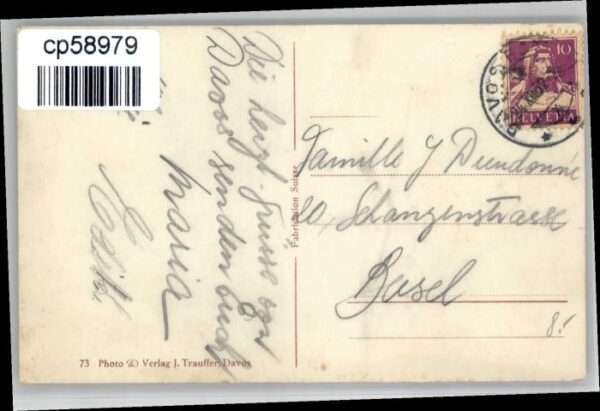 cp58979
Die herzl. Grüsse von
Davos senden Euch
Maria
Edith
10
HELVETIA
DAVOS
Famille J Dieudonné
20, Schanzenstrasse
Basel
8.-
Fabrication Suisse
73 Photo & Verlag J. Trauffer, Davos